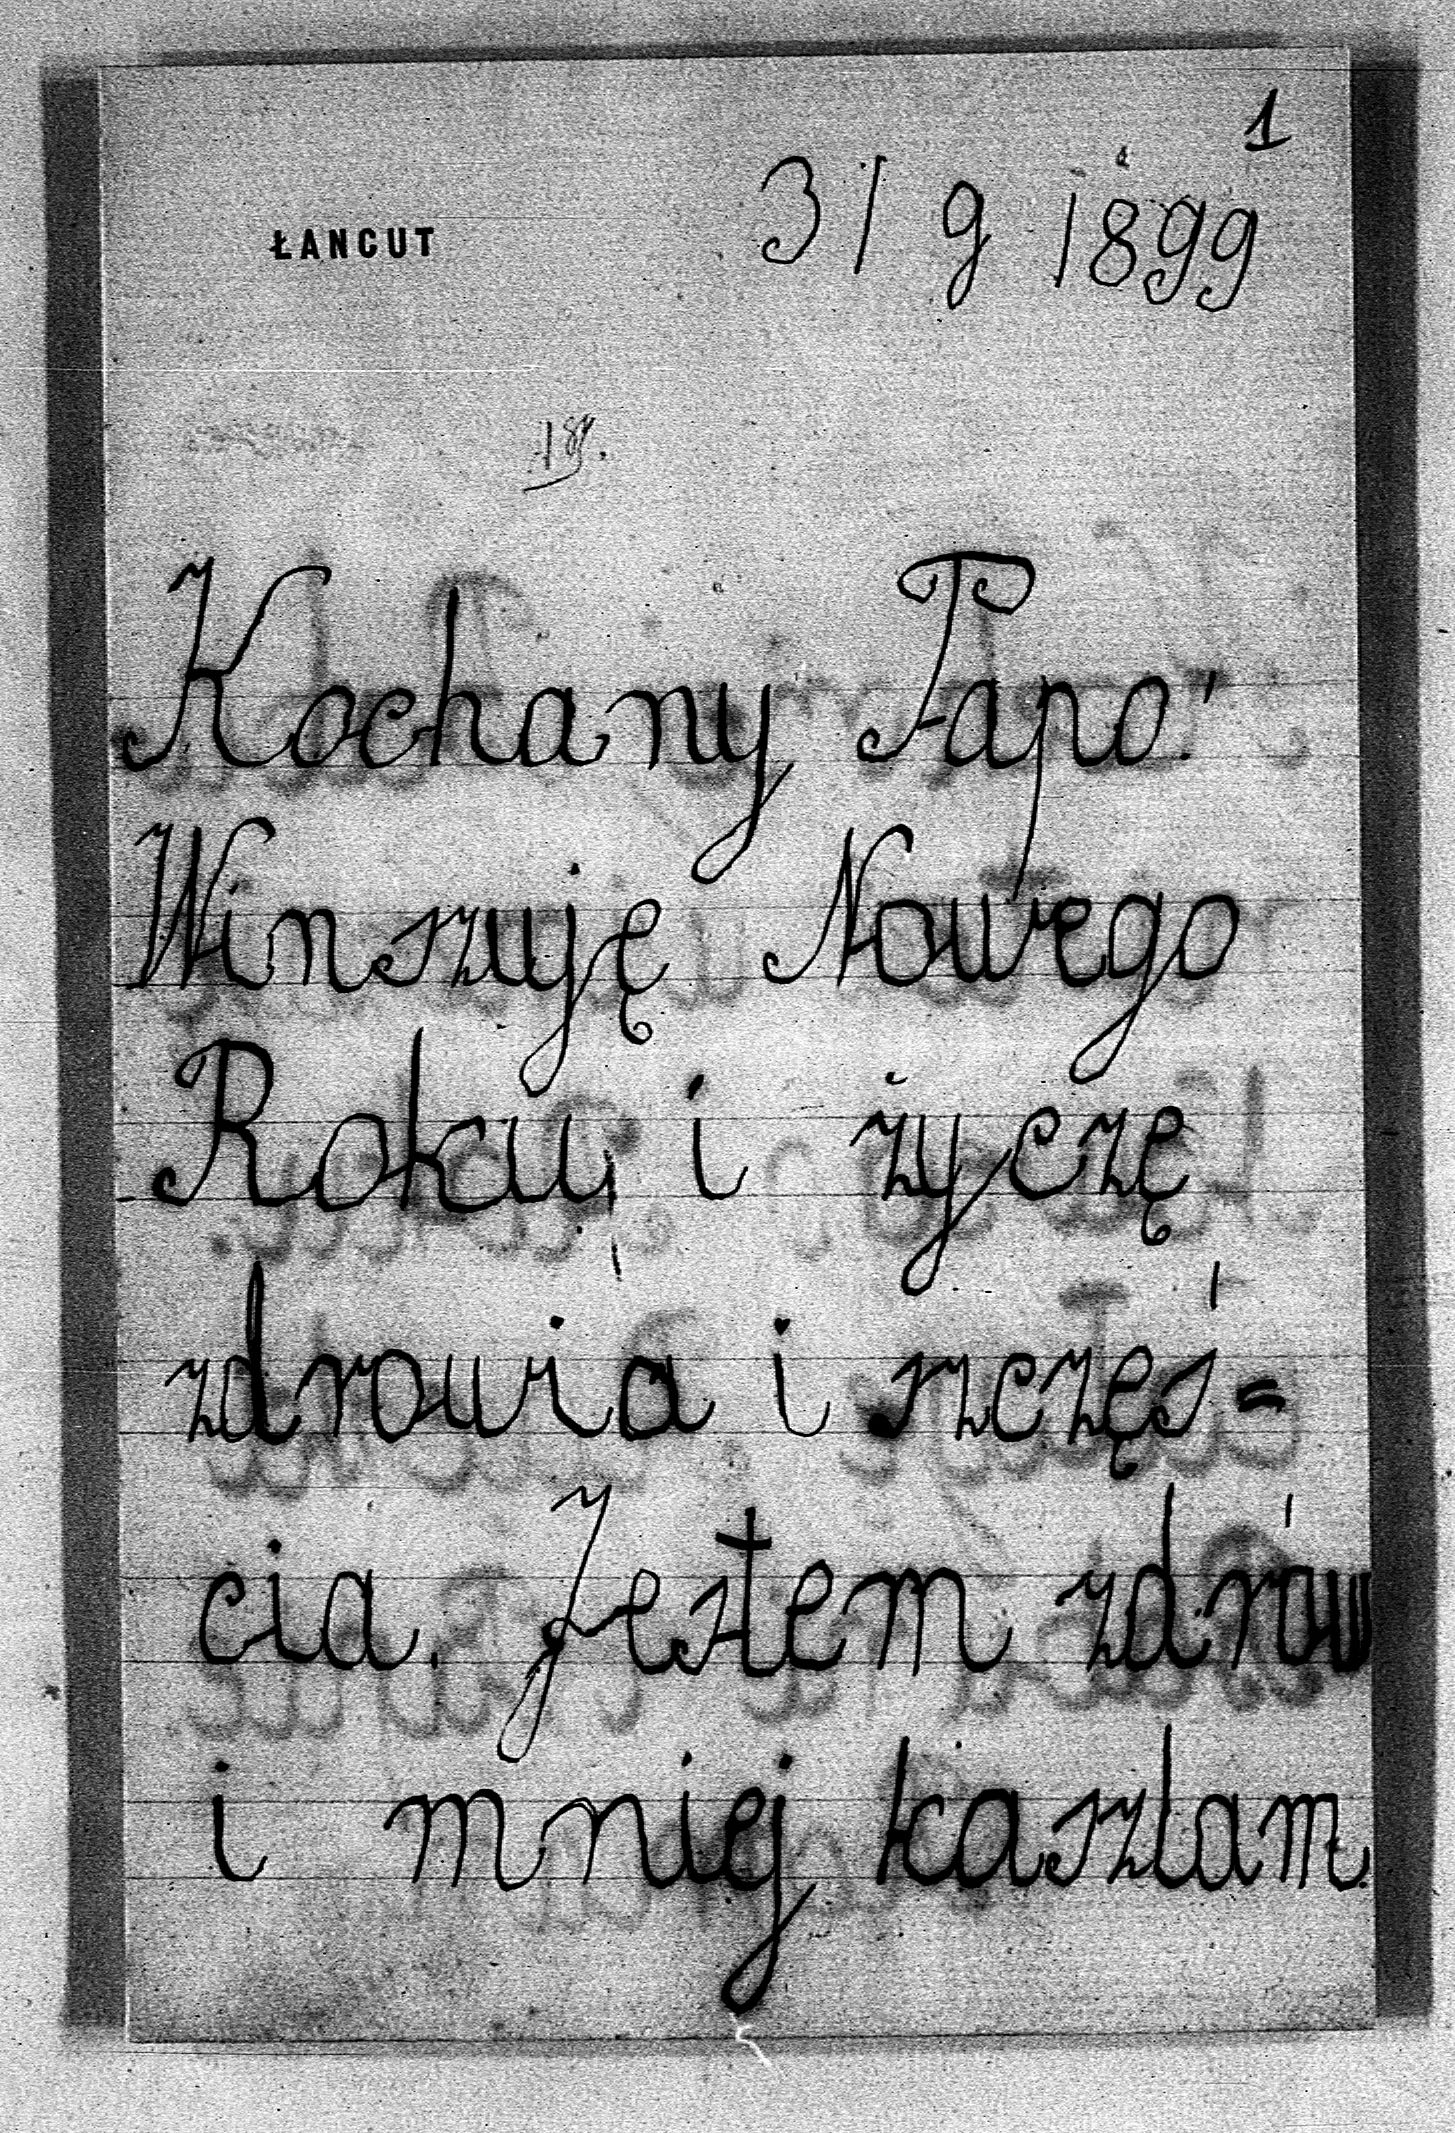 1
ŁANCUT
31 9 1899
Kochany Papo!
Winszuję Nowego
Roku i życzę
zdrowia i szczęś=
cia. Jestem zdrów
i mniej kaszlam.